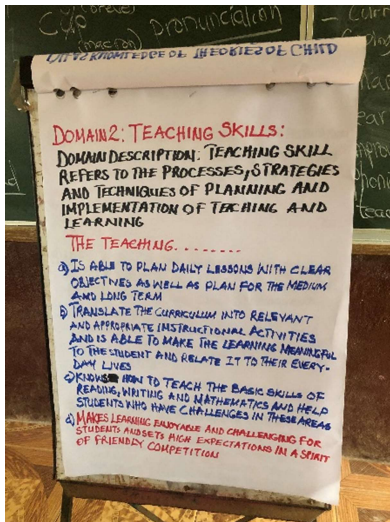 Cup
(macron) Pronunciation
KNOWLEDGE OF THEORIES OF CHILD
DOMAIN 2: TEACHING SKILLS:
DOMAIN DESCRIPTION: TEACHING SKILL
REFERS TO THE PROCESSES, STRATEGIES
AND TECHNIQUES OF PLANNING AND
IMPLEMENTATION OF TECHING AND
LEARNING
THE TEACHING........
a) IS ABLE TO PLAN DAILY LESSONS WITH CLEAR
OBJECTIVES AS WELL AS PLAN FOR THE MEDIUM
AND LONG TERM
b) TRANSLATE THE CURRICULUM INTO RELEVANT
AND APPROPRIATE INSTRUCTIONAL ACTIVITIES
AND IS ABLE TO MAKE THE LEARNING MEANINGFUL
TO THE STUDENT AND RELATE IT TO THEIR EVERY-
DAY LIVES
c) KNOWS HOW TO TEACH THE BASIC SKILLS OF
READING, WRITING AND MATHEMATICS AND HELP
STUDENTS WHO HAVE CHALLENGES IN THESE AREAS
d) MAKES LEARNING ENJOYABLE AND CHALLENGING FOR
STUDENTS AND SETS HIGH EXPECTATIONS IN A SPIRIT
OF FRIENDLY COMPETITION